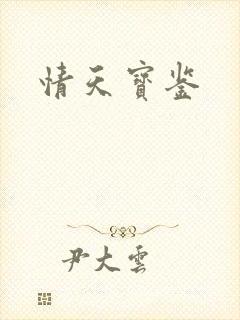 情天寶鉴
尹大雲